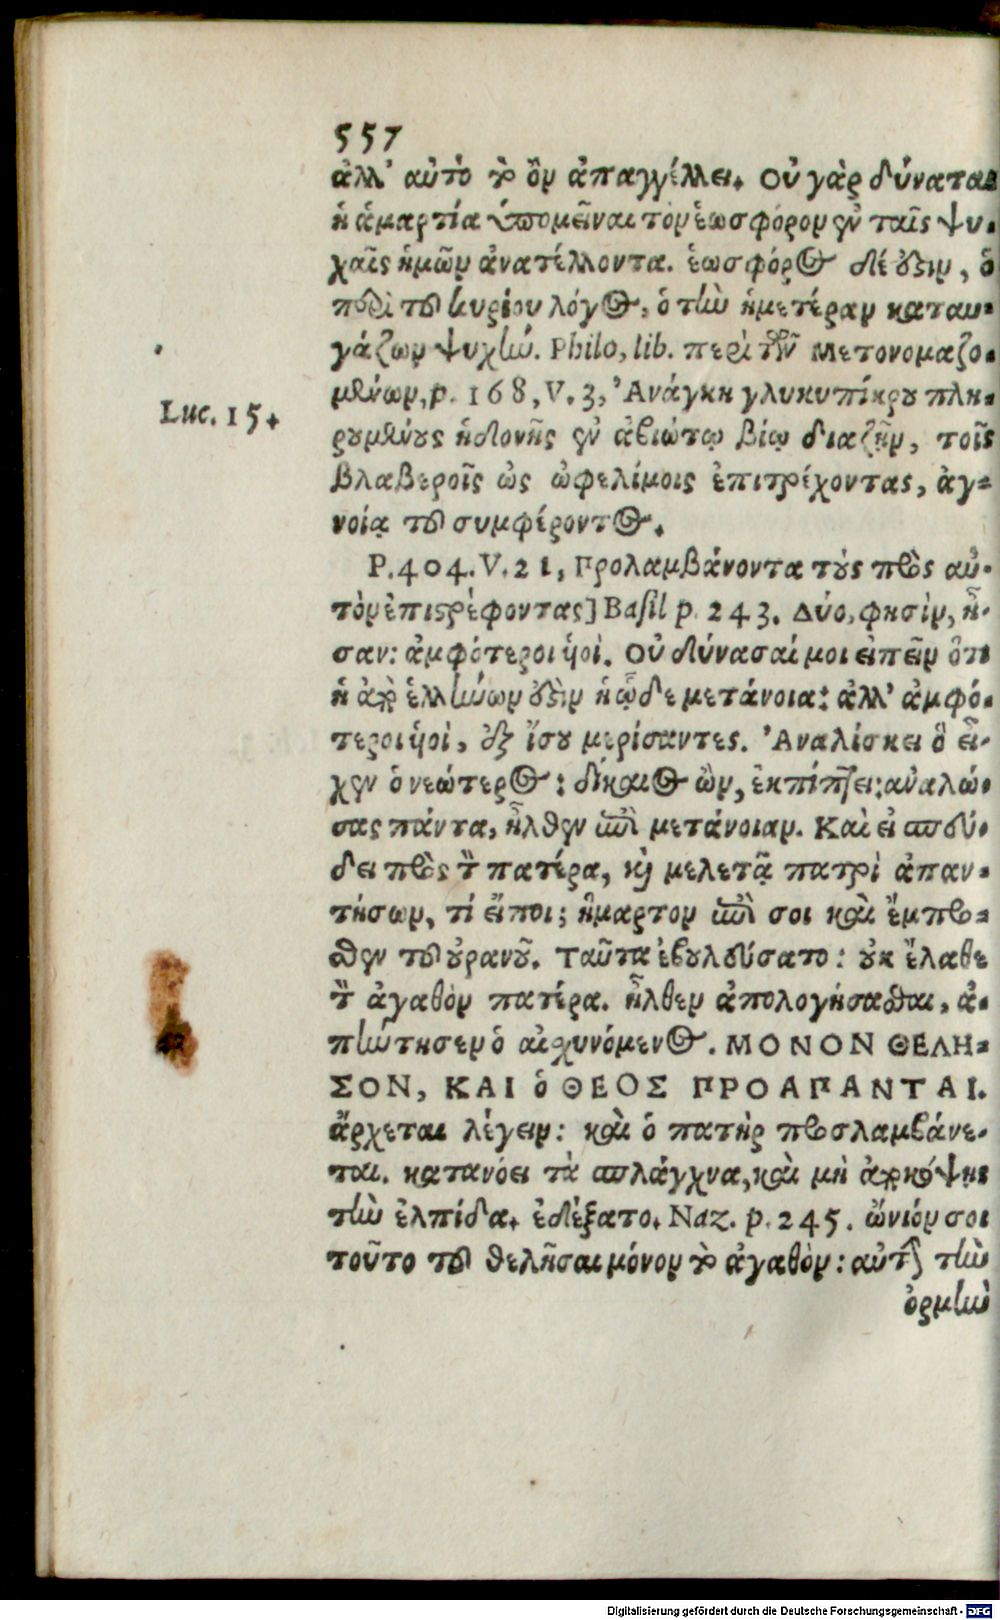 557
ἀλλ' αὐτὸ τὸ ὂν ἀπαγγέλλει. Οὐ γὰρ δύναται
ἡ ἁμαρτία ὑπομεῖναι τὸν ἑωσφόρον ἐν ταῖς ψυ-
χαῖς ἡμῶν ἀνατέλλοντα. ἑωσφόρος δέ ἐστιν, ὁ
περὶ τοῦ κυρίου λόγος, ὁ τὴν ἡμετέραν καταυ-
γάζων ψυχήν. Philo, lib. περὶ τῶν Μετονομαζο-
μένων, p. 168, V. 3, Ἀνάγκη γλυκυπίκρου πλη-
ρουμένους ἡδονῆς ἐν ἀβιώτῳ βίῳ διαζῆν, τοῖς
Luc. 15.
βλαβεροῖς ὡς ὠφελίμοις ἐπιτρέχοντας, ἀγ-
νοίᾳ τοῦ συμφέροντος.
P. 404. V. 21, Προλαμβάνοντα τοὺς πρὸς αὐ-
τὸν ἐπιστρέφοντας] Basil p. 243. Δύο, φησὶν, ἦ-
σαν: ἀμφότεροι ὑοὶ. Οὐ δύνασαί μοι εἰπεῖν ὅτι
ἡ ἀφ' ἑλλήνων οὐδὲν ἡ ᾧδε μετάνοια: ἀλλ' ἀμφό-
τεροι ὑοὶ, ἐξ ἴσου μερίσαντες. Ἀναλίσκει ὃ εἶ-
χεν ὁ νεώτερος: δίκαιος ὢν, ἐκπίπτει: ἀναλώ-
σας πάντα, ἦλθεν ἐπὶ μετάνοιαν. Καὶ εἰ σπεύ-
δει πρὸς τὸν πατέρα, καὶ μελετᾷ πατρὶ ἀπαν-
τήσων, τί εἴποι; ἥμαρτον ἐπὶ σοι καὶ ἔμπρο-
σθεν τοῦ οὐρανοῦ. Ταῦτα ἐβουλεύσατο: οὐκ ἔλαθε
τὸν ἀγαθὸν πατέρα. ἦλθεν ἀπολογήσασθαι, ἀ-
πήντησεν ὁ αἰσχυνόμενος. ΜΟΝΟΝ ΘΕΛΗ-
ΣΟΝ, ΚΑΙ ὁ ΘΕΟΣ ΠΡΟΑΠΑΝΤΑΙ.
ἄρχεται λέγειν: καὶ ὁ πατὴρ προσλαμβάνε-
ται. κατανόει τὰ σπλάγχνα, καὶ μὴ ἀποκόψῃς
τὴν ἐλπίδα. ἐδέξατο. Naz. p. 245. ὤνιόν σοι
τοῦτο τοῦ θελῆσαι μόνον τὸ ἀγαθὸν: αὐτὴν τὴν
ὁρμὴν
Digitalisierung gefördert durch die Deutsche Forschungsgemeinschaft - DFG